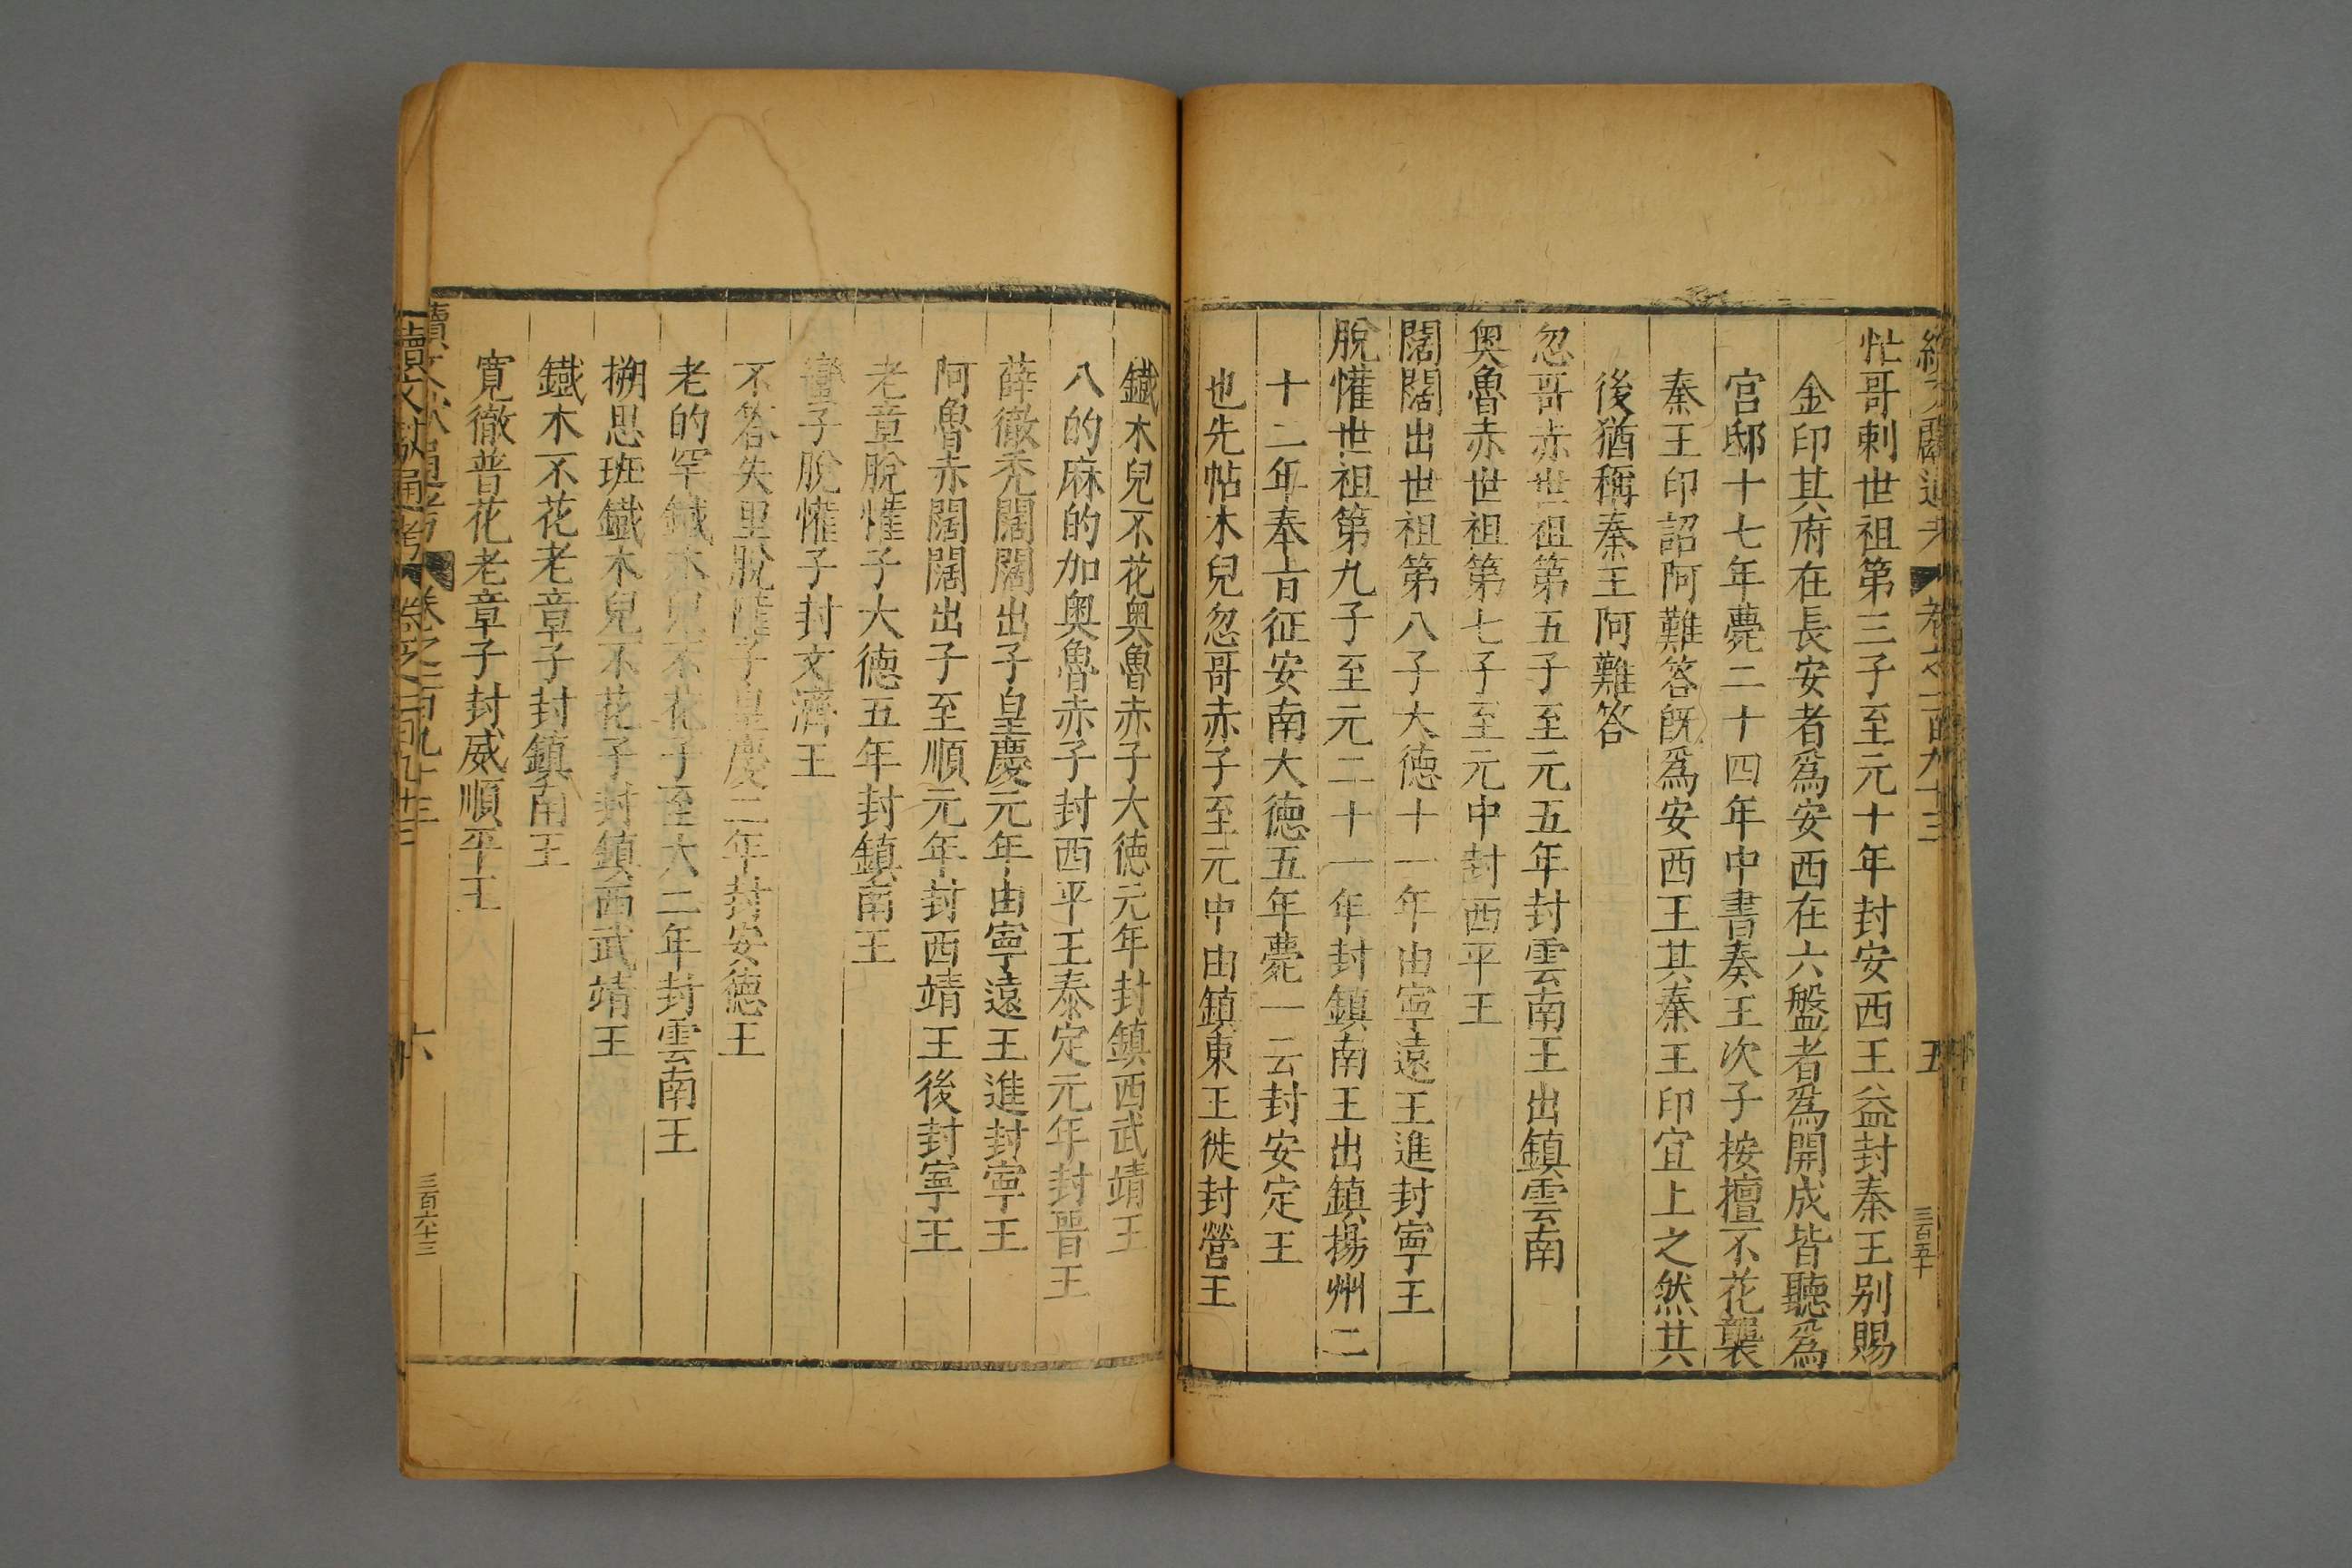 續文獻通考 卷之二百九十三 五 三百五十
忙哥剌世祖第三子至元十年封安西王益封秦王别賜
金印其府在長安者爲安西在六盤者爲開成皆聽爲
宮邸十七年薨二十四年中書奏王次子按檀不花襲
秦王印詔阿難答旣爲安西王其秦王印宜上之然其
後猶稱秦王阿難答
忽哥赤世祖第五子至元五年封雲南王出鎮雲南
奥魯赤世祖第七子至元中封西平王
闊闊出世祖第八子大德十一年由寧遠王進封寧王
脫懽世祖第九子至元二十一年封鎮南王出鎮揚州二
十二年奉旨征安南大德五年薨一云封安定王
也先帖木兒忽哥赤子至元中由鎮東王徙封營王
鐵木兒不花奥魯赤子大德元年封鎮西武靖王
八的麻的加奥魯赤子封西平王泰定元年封晉王
薛徹禿闊闊出子皇慶元年由寧遠王進封寧王
阿魯赤闊闊出子至順元年封西靖王後封寧王
老章脫懽子大德五年封鎮南王
蠻子脫懽子封文濟王
不答失里脫懽子皇慶二年封安德王
老的罕鐵木兒不花子至大二年封雲南王
搠思班鐵木兒不花子封鎮西武靖王
鐵木不花老章子封鎮南王
寛徹普花老章子封威順平王
續文獻通考 卷之二百九十三 六 三百六十三